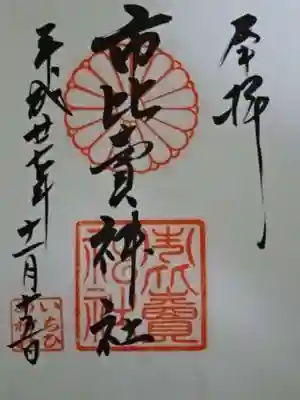 奉拝
市比賣神社
平成廿七年十一月十五日
市比賣
神社
いちひ